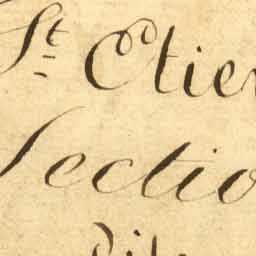 St Etie
Sectio